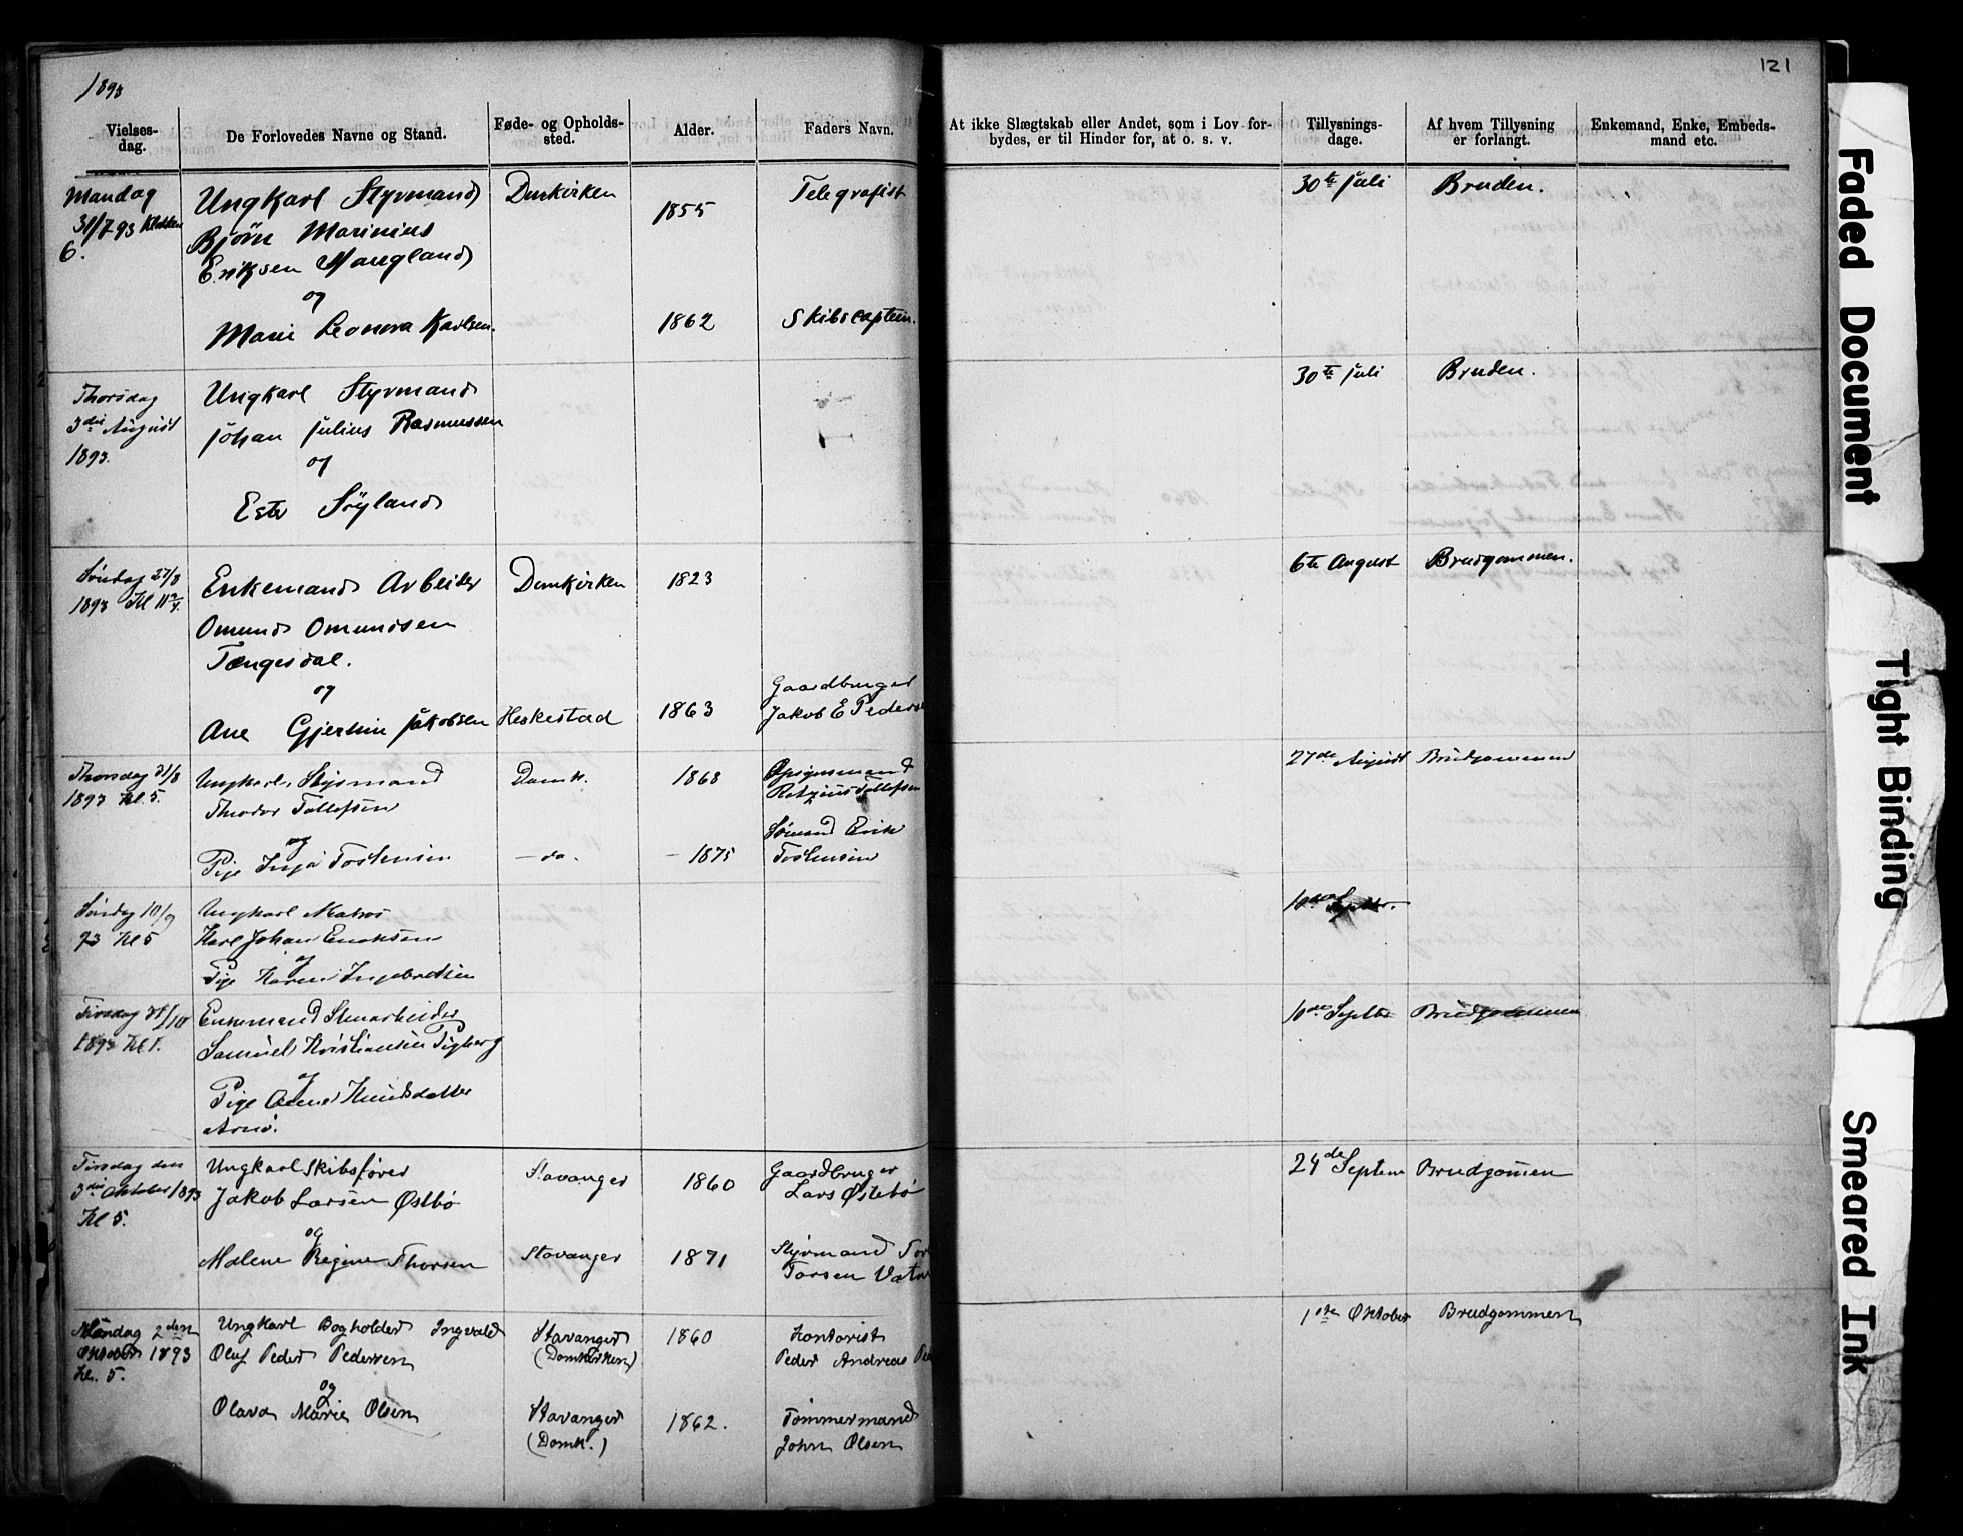 1893
121
Vielses-dag.
De Forlovedes Navne og Stand.
Føde- og Opholds-sted.
Alder.
Faders Navn.
At ikke Slægtskab eller Andet, som i Lov for-bydes, er til Hinder for, at o. s. v.
Tillysnings-dage.
Af hvem Tillysning er forlangt.
Enkemand, Enke, Embeds-mand etc.
Mandag
31/7 93 Klokken
6.
Ungkarl Styrmand
Bjørn Marinius
Eriksen Haugland
og
Marie Leonora Karlsen.
Domkirken
1855
1862
Telegrafist
Skibscaptein.
30te Juli
Bruden.
Thorsdag
3die August
1893.
Ungkarl Styrmand
Johan Julius Rasmussen
og
Ester Söyland
30te Juli
Bruden.
Søndag 27/8
1893 Kl 11 3/4.
Enkemand Arbeider
Omund Omundsen
Tengesdal.
og
Ane Gjertine Jakobsen
Domkirken
Heskestad
1823
1863
Gaardbruger
Jakob E Peders
6te August
Brudgommen.
Thorsdag 31/8
1893 Kl. 5.
Ungkarl, Styrmand
Theodor Tollefsen
og
Pige Inga Tostensen
Domk.
— do.
1868
— 1875
Opsynsmand
Tollefsen
Sömand Erik
Tostensen
27de August
Brudgommen
Søndag 10/9
93 Kl 5
Ungkarl Matros
Karl Johan Enoksen
og
Pige Karen Ingebretsen
10de Septbr.
Tirsdag 31/10
1893 Kl 1.
Enkemand Stenarbeider
Samuel Kristiansen Tipberg
og
Pige Anne Knudsdatter
10de Septbr
Brudgommen
Tirsdag den
3die Oktober 1893
Kl 5.
Ungkarl Skibsfører
Jakob Larsen Østbø
og
Malene Regine Thorsen
Stavanger
Stavanger
1860
1871
Gaardbruger
Lars Østebø
Styrmand Tor
Torsen Vatn
24de Septem
Brudgommen
Mandag 2den
Oktober 1893
Kl. 5.
Ungkarl Bogholder Ingvald
Oluf Peder Pedersen
og
Olava Marie Olsen
Stavanger
(Domkirken)
Stavanger
(Domk.)
1860
1862.
Kontorist
Peder Andreas Pe
Tömmermand
John Olsen
1ste Oktober
Brudgommen
Faded Document
Tight Binding
Smeared Ink